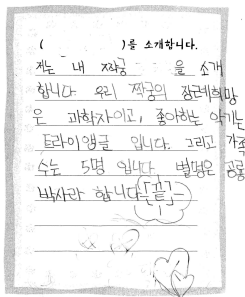 (                    )를 소개합니다.
저는 내 짝궁       을 소개
합니다 우리 짝궁의 장르희망
은 과학자이고, 좋아하는 악기는
트라이앵글 입니다. 그리고 가족
수는 5명 입니다. 별명은 공룡
박사라 합니다. [끝]